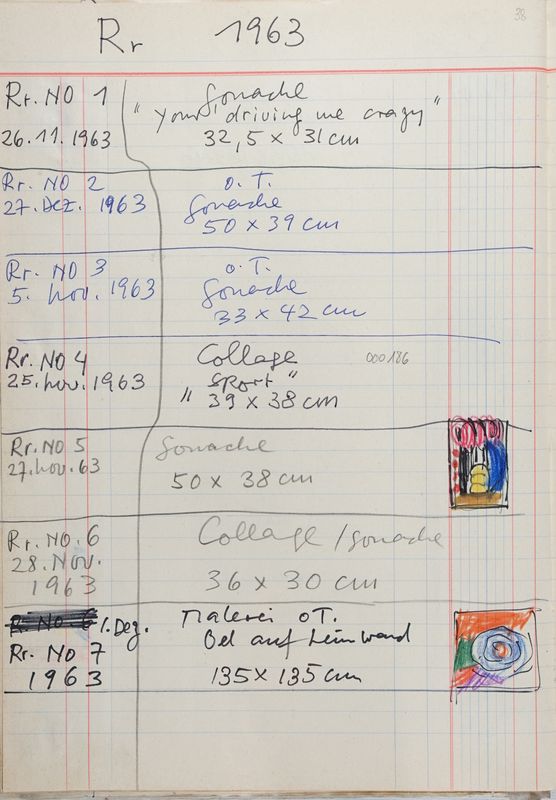 38
Rr 1963
Rr. NO 1 Gouache
"your driving me crazy"
26.11.1963 32,5 x 31 cm
Rr. NO 2 O.T.
27. Dez. 1963 Gouache
50 x 39 cm
Rr. NO 3 O.T.
5. Nov. 1963 Gouache
33 x 42 cm
Rr. NO 4 Collage 000186
25. Nov. 1963 "Sport"
39 x 38 cm
Rr. NO 5 Gouache
27. Nov. 63 50 x 38 cm
Rr. NO. 6 Collage / Gouache
28. Nov.
1963 36 x 30 cm
1. Dez. Malerei OT.
Rr. NO 7 Oel auf Leinwand
1963 135 x 135 cm